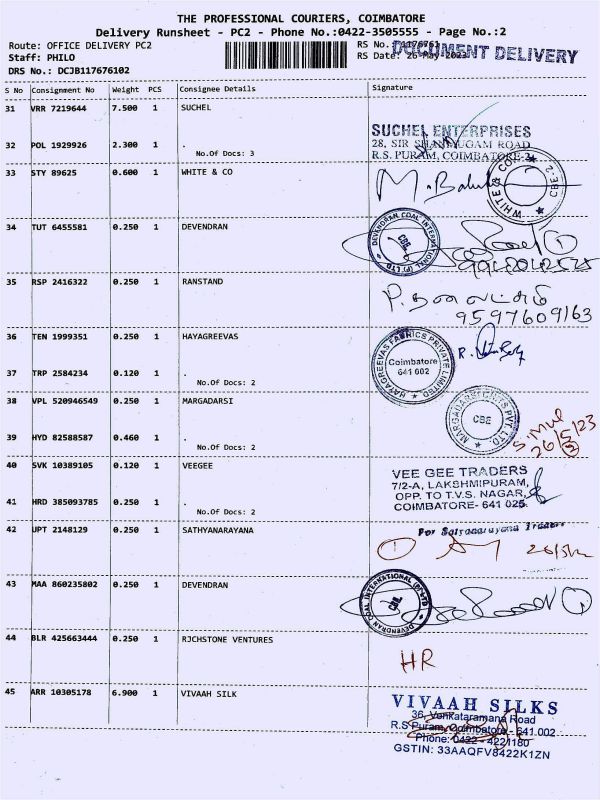 THE PROFESSIONAL COURIERS, COIMBATORE
Delivery Runsheet - PC2 - Phone No.:0422-3505555 - Page No.:2
Route: OFFICE DELIVERY PC2
Staff: PHILO
DRS No.: DCJB117676102
RS No.:
RS Date: 26-May-2023
DOCUMENT DELIVERY
S No Consignment No Weight PCS Consignee Details Signature
31 VRR 7219644 7.500 1 SUCHEL
SUCHEL ENTERPRISES
28, SIR SHANMUGAM ROAD
R.S. PURAM, COIMBATORE-2
32 POL 1929926 2.300 1 .
No.Of Docs: 3
33 STY 89625 0.600 1 WHITE & CO
WHITE & CO CBE-2
34 TUT 6455581 0.250 1 DEVENDRAN
DEVENDRAN COAL INTERNATIONAL (P) LTD
CBE
35 RSP 2416322 0.250 1 RANSTAND
9597609163
36 TEN 1999351 0.250 1 HAYAGREEVAS
HAYAGREEVAS FABRICS PRIVATE LIMITED
Coimbatore
641 002
37 TRP 2584234 0.120 1 .
No.Of Docs: 2
38 VPL 520946549 0.250 1 MARGADARSI
CBE
26/5/23
39 HYD 82588587 0.460 1 .
No.Of Docs: 2
40 SVK 10389105 0.120 1 VEEGEE
VEE GEE TRADERS
7/2-A, LAKSHMIPURAM,
OPP. TO T.V.S. NAGAR,
COIMBATORE- 641 025.
41 HRD 385093785 0.250 1 .
No.Of Docs: 2
42 UPT 2148129 0.250 1 SATHYANARAYANA
For Satyanarayana Traders
43 MAA 860235802 0.250 1 DEVENDRAN
DEVENDRAN COAL INTERNATIONAL (P) LTD
CBE
44 BLR 425663444 0.250 1 RJCHSTONE VENTURES
HR
45 ARR 10305178 6.900 1 VIVAAH SILK
VIVAAH SILKS
36, Venkataramana Road
R.S Puram, Coimbatore - 641 002
Phone: 0422 - 4221180
GSTIN: 33AAQFV8422K1ZN